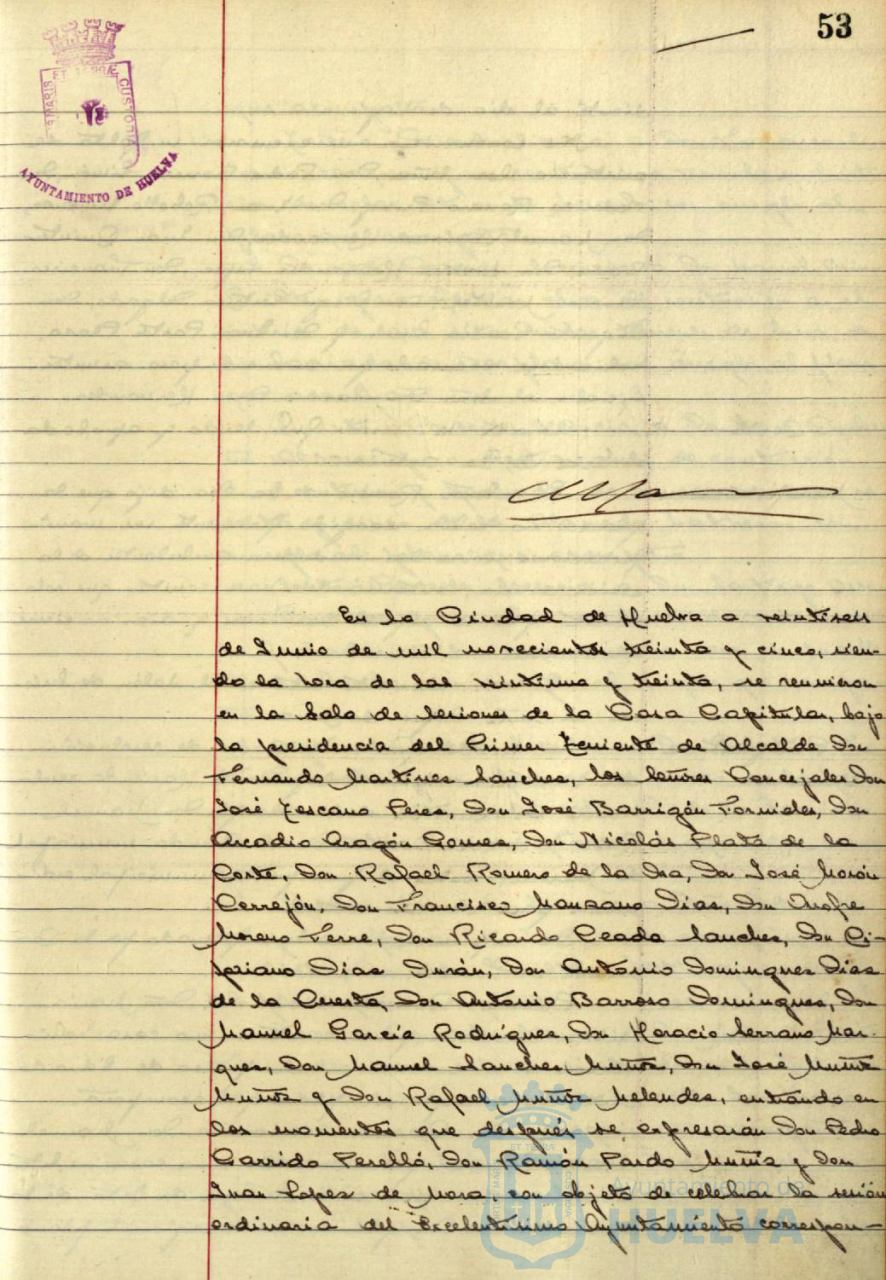 53
PORTUS MARIS ET TERRÆ CUSTODIA
AYUNTAMIENTO DE HUELVA
En la Ciudad de Huelva a veintiseis
de Junio de mil novecientos treinta y cinco, sien-
do la hora de las veintiuna y treinta, se reunieron
en la Sala de Sesiones de la Casa Capitular, bajo
la presidencia del Primer Teniente de Alcalde Don
Fernando Martines Sanches, los Señores Concejales Don
José Tescano Peres, Don José Barrigón Fornieles, Don
Arcadio Aragón Gomes, Don Nicolás Plata de la
Corte, Don Rafael Romero de la Osa, Don José Morón
Cerrejón, Don Francisco Manzano Dias, Don Onofre
Moreno Ferre, Don Ricardo Ceada Sanches, Don Ci-
priano Dias Durán, Don Antonio Domingues Dias
de la Cuesta, Don Antonio Barroso Domingues, Don
Manuel García Rodrígues, Don Horacio Serrano Mar-
ques, Don Manuel Sanches Muñoz, Don José Muñiz
Muñoz y Don Rafael Muñoz Melendes, entrando en
los momentos que después se expresarán Don Pedro
Garrido Perelló, Don Ramón Pardo Muñiz y Don
Juan Lopez de Mora, con objeto de celebrar la sesión
ordinaria del Excelentísimo Ayuntamiento correspon-
Ayuntamiento de
HUELVA